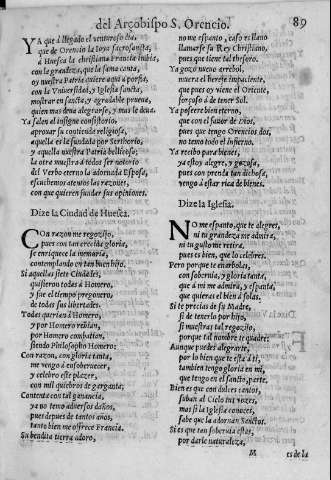 del Arçobispo S. Orencio. 89
YA que â llegado el venturoso dia,
que de Orencio la Ioya sacrosancta,
à Huesca la christiana Francia imbia,
con la grandeza, que la fama canta,
oy nuestra Patria quiere aqui a porfia,
con la Vniuersidad, y Iglesia sancta,
mostrar en sancta, y agradable prueua,
quien mas deuia alegrarse, y mas le deua.
Ya salen al insigne consistorio,
aprouar su contienda religiosa,
aquella es la fundada por Serthorio,
y aquella nuestra Patria bellicosa,
la otra muestra a todos ser notorio
del Verbo eterno la adornada Esposa,
escuchemos atentos las razones,
con que quieren fundar sus opiniones.
Dize la Ciudad de Huesca.
COn razon me regozijo,
pues con tan crecida gloria,
se enriquece la memoria,
contemplando vn tan buen hijo.
Si aquellas siete Ciudades,
quisieron todas â Homero,
y fue el tiempo pregonero,
de todas sus libertades.
Todas querian â Homero,
y por Homero rebian,
por Homero combatian,
siendo Philosopho Homero:
Con razon, con gloria tanta,
me vengo â ensoberuecer,
y celebro este plazer,
con mil quiebros de garganta;
Contenta con tal ganancia,
ya no temo aduersos daños,
pues despues de tantos años,
tanto bien me ofrece Francia.
Su bendita tierra adoro,
no me espanto, caso es llano
llamarse su Rey Christiano,
pues que tiene tal thesoro.
Ya gozo nueuo arrebol,
muera el herege impaciente,
que pues oy viene el Oriente,
forçoso â de tener Sol.
Ya posseré bien eterno,
que con el fauor de Dios,
pues que tengo Orencios dos,
no temo todo el infierno.
Ya recibo para bienes,
ya estoy alegre, y gozosa,
pues con prenda tan dichosa,
vengo â estar rica de bienes.
Dize la Iglesia.
NO me espanto, que te alegres,
ni tu grandeza me admira,
ni tu gusto me retira,
pues es bien, que lo celebres.
Pero porque te enarbolas,
con soberuia, y gloria tanta,
que â mi me admira, y espanta,
que quieras el bien â solas.
Si te precias de su Madre,
si de tenerlo por hijo,
si muestras tal regozijo,
porque tal nombre te quadre:
Aunque puedes alegrarte,
por lo bien que te està â ti,
tambien tengo gloria en mi,
que tengo en el sancto, parte.
Bien es que con dulces cantos,
suban al Cielo tus vozes,
mas si la Iglesia conoces,
sabe que la adornan Sanctos.
Si es que tan soberuia estas,
por darle naturaleza,
M es de la